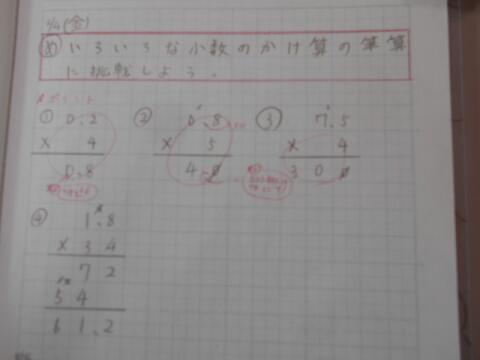 (金)
め いろいろな小数のかけ算の筆算
に挑戦しよう。
ポイント
① 0.2
× 4
0.8
② 0.8
× 5
4.0
③ 7.5
× 4
30.0
④ 1.8
× 34
72
54
61.2